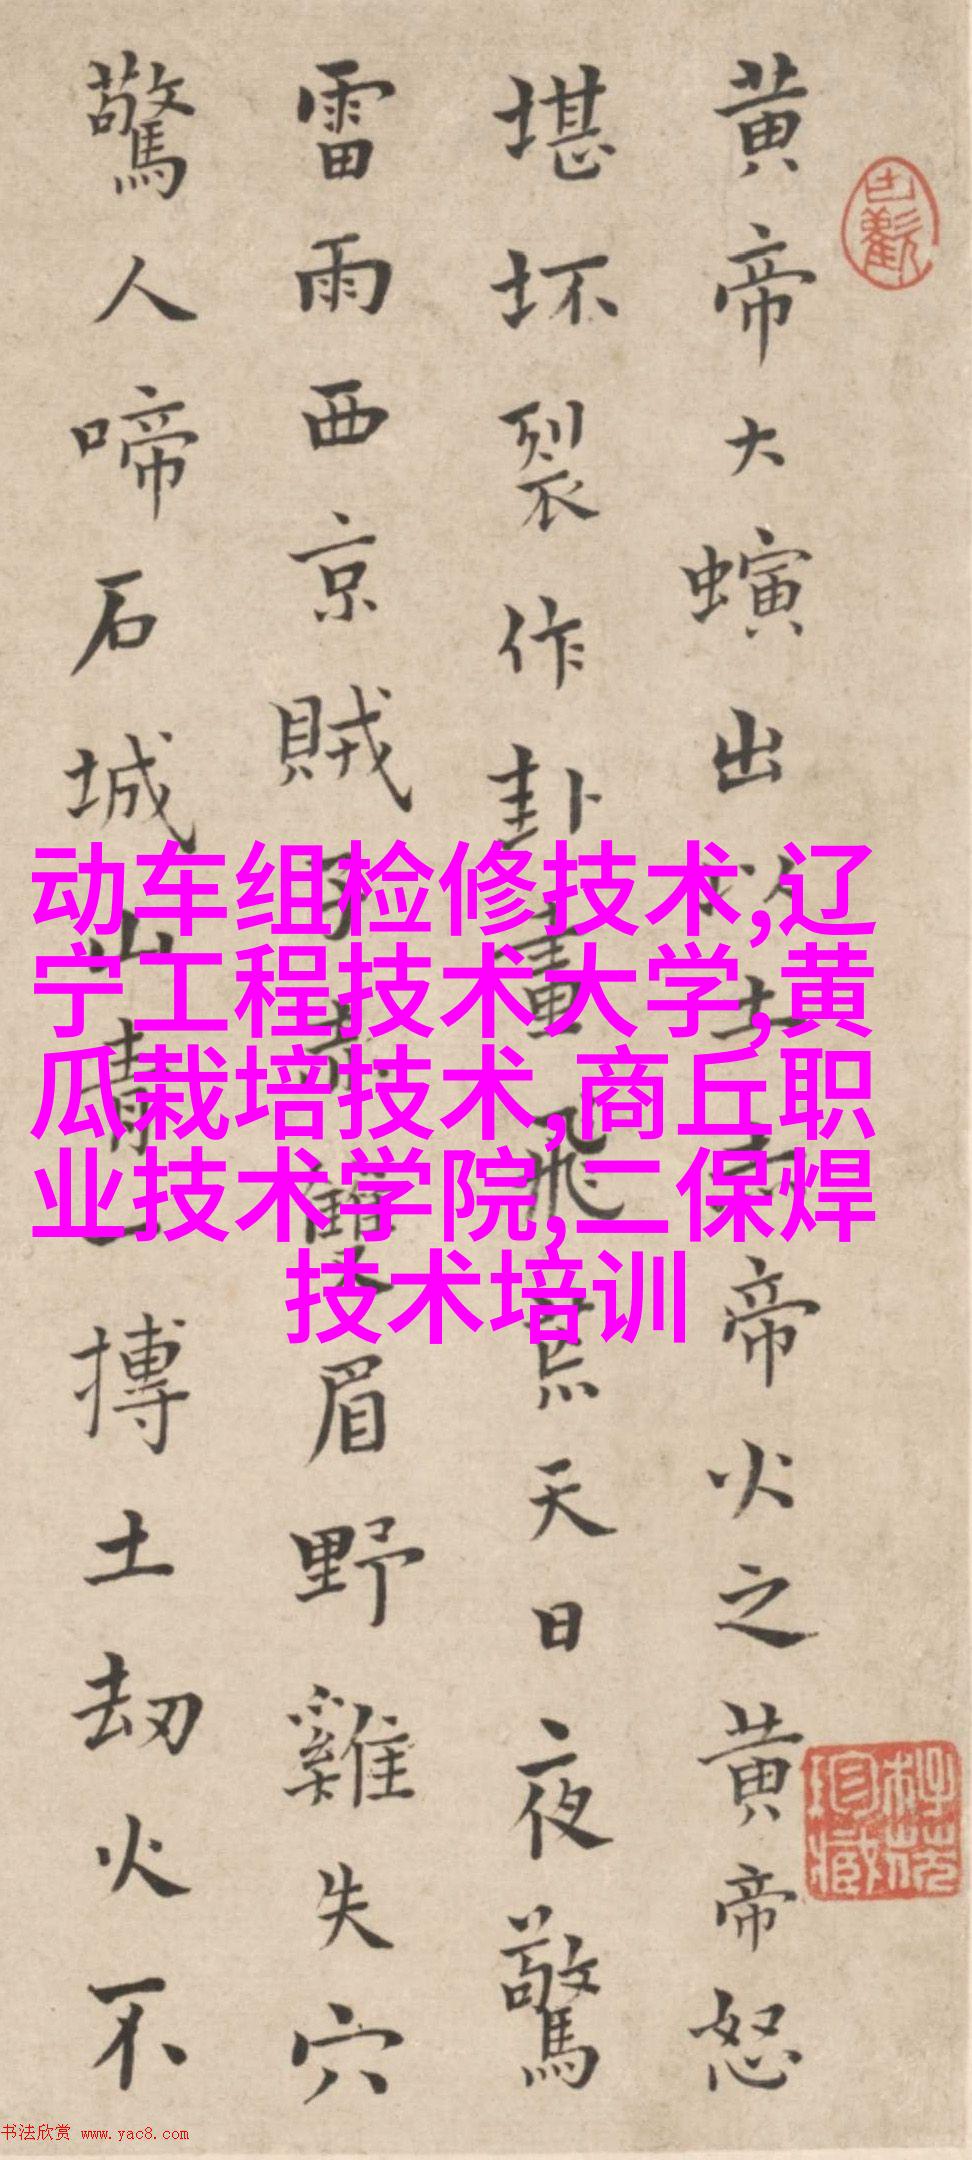 黄帝大螾出以土
帝火之黄帝怒
堪坏裂作卦畫飛
天日夜驚
雷雨西京賊
眉野雞失穴
驚人啼石城山青
搏土劫火不
动车组检修技术,辽
宁工程技术大学,黄
瓜栽培技术,商丘职
业技术学院,二保焊
技术培训
书法欣赏 www.yac8.com